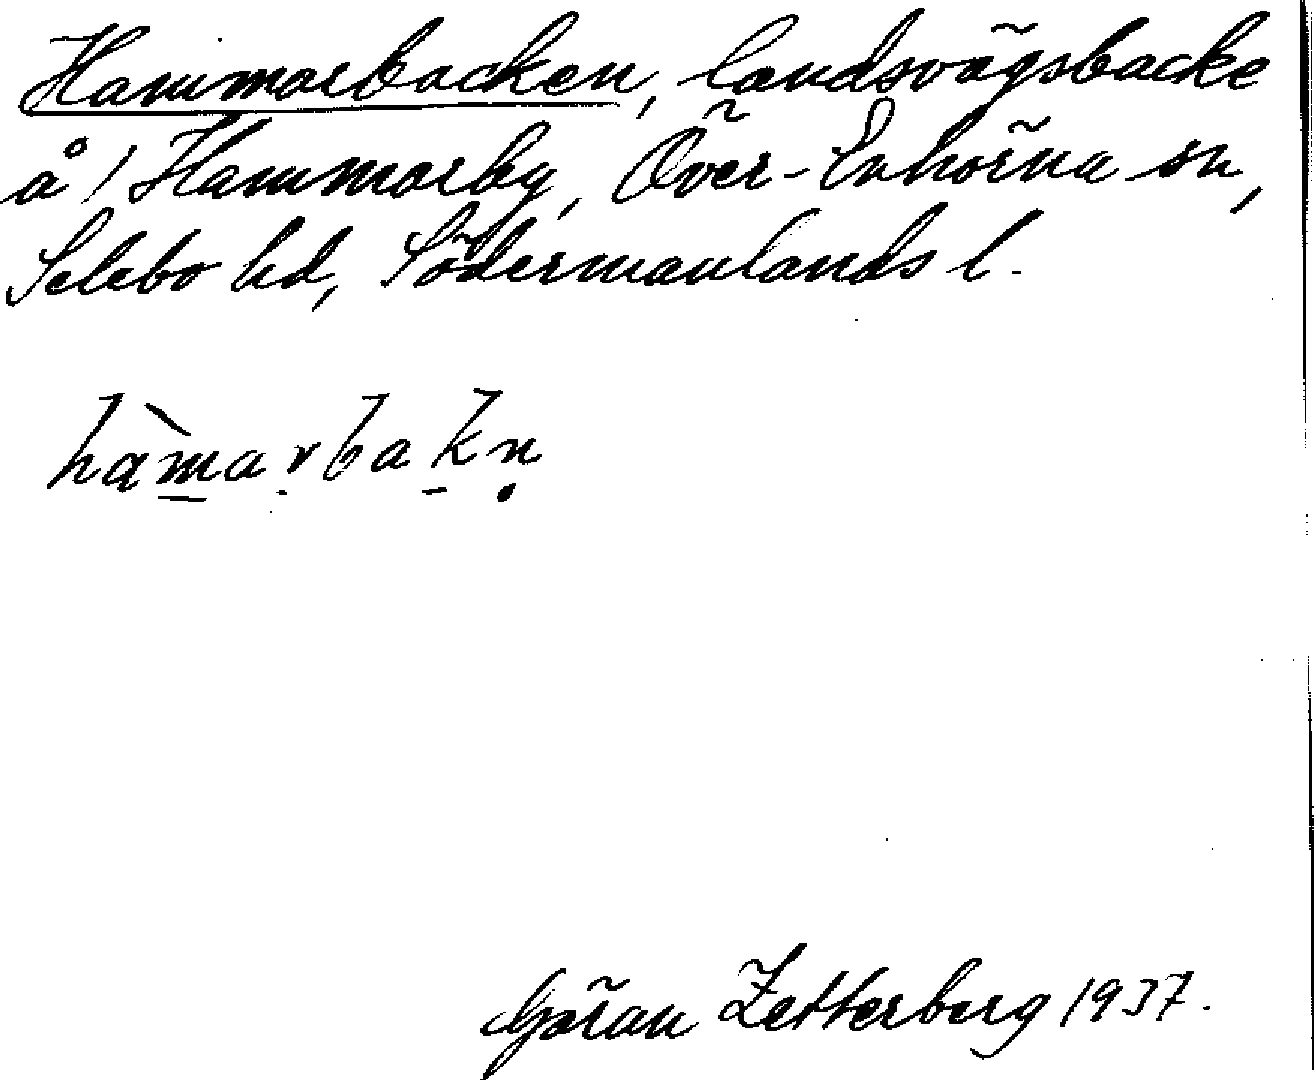 Hammarbacken, landsvägsbacke
å 1 Hammarby, Över-Enhörna sn,
Selebo hd, Södermanlands l.
hàmarbakn̥
Göran Zetterberg 1937.